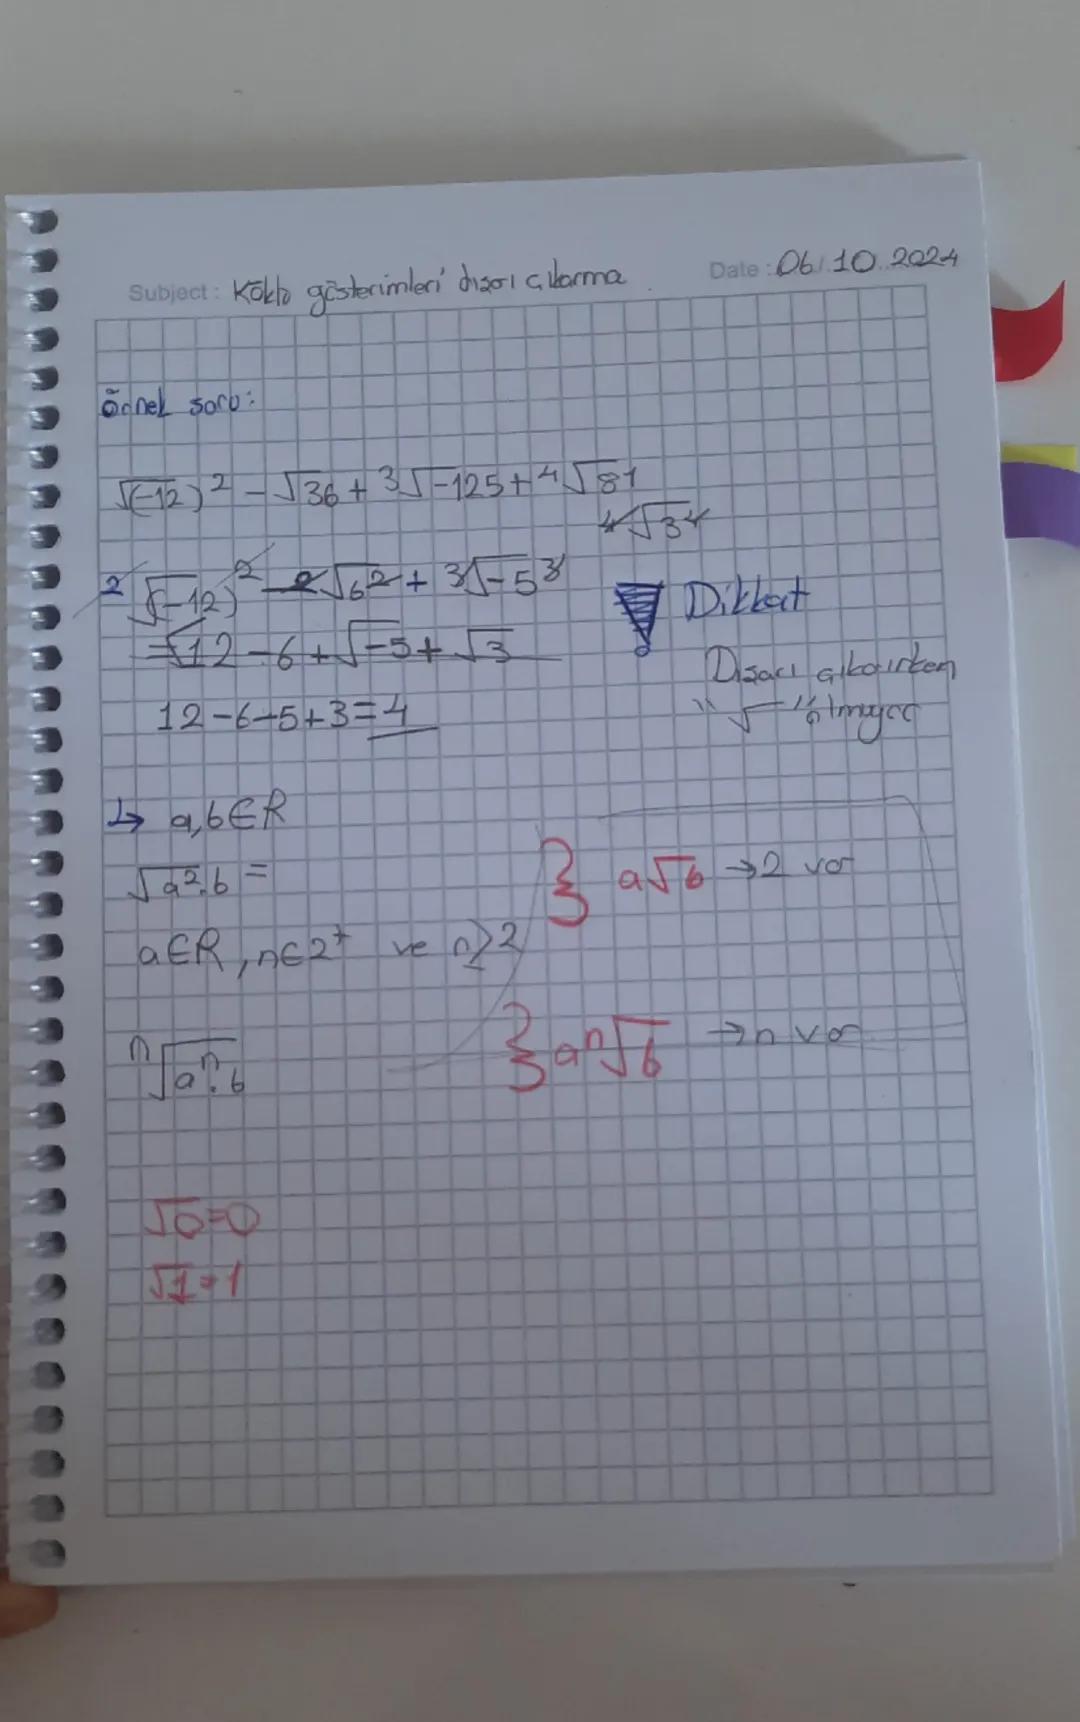 Subject: Köklü gösterimleri dışarı çıkarma
Date: 06.10.2024
örnek soru:
√(-12)² - √36 + ³√-125 + ⁴√81
⁴√3⁴
²√(-12)² - ²√6² + ³√-5³
Dikkat
=√12 - 6 + √-5 + √3
Dışarı çıkarırken
12-6-5+3=4
"√‾" olmayca
↳ a,b∈R
√a².b =
} a√b → 2 var
a∈R, n∈2⁺ ve n≥2
ⁿ√aⁿ.b
} aⁿ√b → n var
√0=0
√1=1